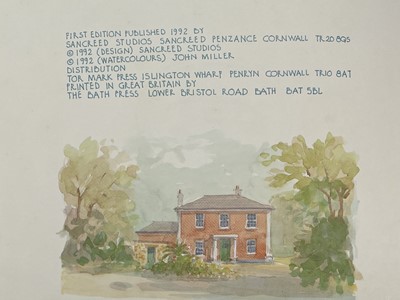 FIRST EDITION PUBLISHED 1992 BY
SANCREED STUDIOS SANCREED PENZANCE CORNWALL TR20 8QS
© 1992 (DESIGN) SANCREED STUDIOS
© 1992 (WATERCOLOURS) JOHN MILLER
DISTRIBUTION
TOR MARK PRESS ISLINGTON WHARF PENRYN CORNWALL TR10 8AT
PRINTED IN GREAT BRITAIN BY
THE BATH PRESS LOWER BRISTOL ROAD BATH BAT 5BL